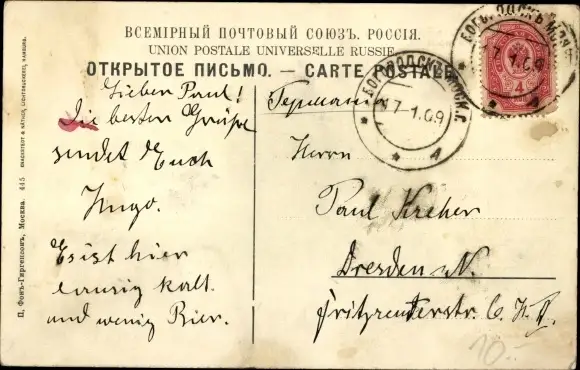 ВСЕМІРНЫЙ ПОЧТОВЫЙ СОЮЗЪ. РОССІЯ.
UNION POSTALE UNIVERSELLE RUSSIE.
ОТКРЫТОЕ ПИСЬМО. — CARTE POSTALE
Lieben Paul!
Die besten Grüße
sendet Euch
Hugo.
Es ist hier
lausig kalt
und wenig Bier.
Германія
Herrn
Paul Kreher
Dresden N.
Fritzreuterstr. 6. H. II
10.-
БОГОРОДСКЪ МОСК. Г.
17-1.09
17 1.09
4
П. Фонъ-Гиргенсонъ, Москва. 445